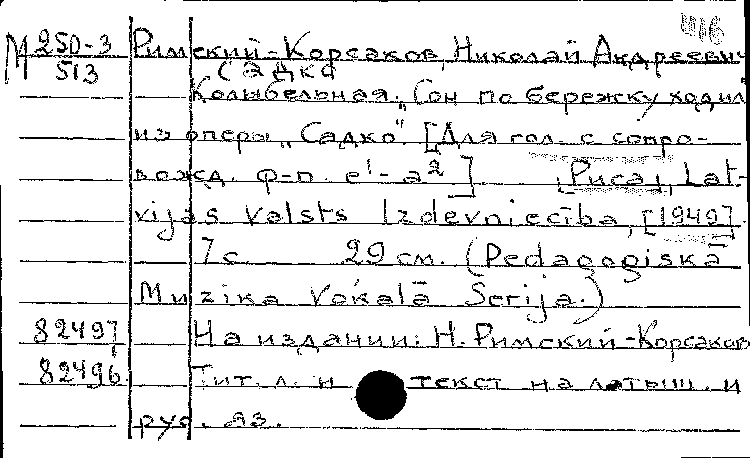 М 250-3
513
Римский-Корсаков, Николай Андреевич
Садко
Колыбельная „Сон по бережку ходил"
из оперы „Садко". [Для гол. с сопро-
вожд. ф-п. e¹-a²] [Рига], Lat-
vijas Valsts Izdevniecība, [1949].
7 с 29 см. (Pedagogiskā
Muzika Vokalā Serija.)
82497
На издании: Н. Римский-Корсаков
82496
Тит. л. и текст на латыш. и
рус. яз.